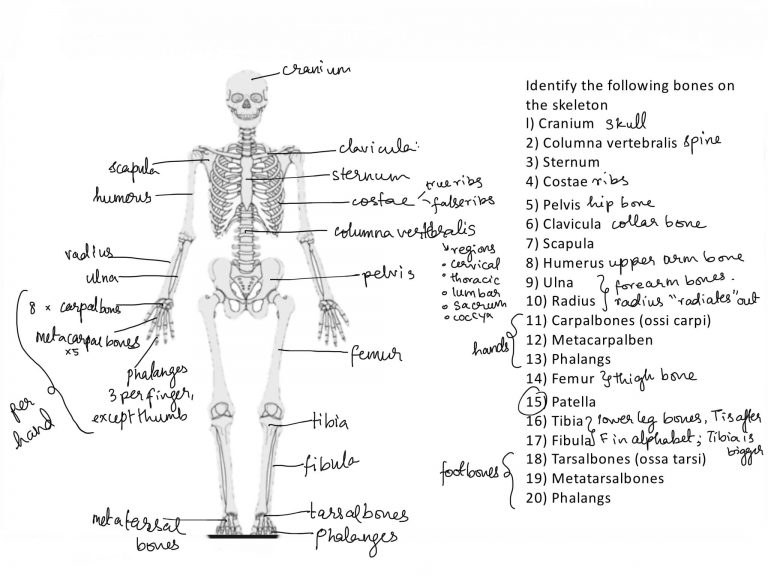 cranium
clavicula:
scapula
sternum
humerus
true ribs
costae
false ribs
columna vertebralis
regions
• cervical
• thoracic
• lumbar
• sacrum
• coccyx
radius
ulna
pelvis
8 x carpalbons
metacarpal bones
x5
phalanges
3 per finger,
except thumb
per
hand
femur
tibia
fibula
metatarsal
bones
tarsalbones
phalanges
Identify the following bones on
the skeleton
1) Cranium skull
2) Columna vertebralis spine
3) Sternum
4) Costae ribs
5) Pelvis hip bone
6) Clavicula collar bone
7) Scapula
8) Humerus upper arm bone
9) Ulna forearm bones.
10) Radius radius "radiates" out
11) Carpalbones (ossi carpi)
hands
12) Metacarpalben
13) Phalangs
14) Femur thigh bone
15) Patella
16) Tibia lower leg bones, T is after
17) Fibula F in alphabet; Tibia is
bigger
18) Tarsalbones (ossa tarsi)
foot bones
19) Metatarsalbones
20) Phalangs